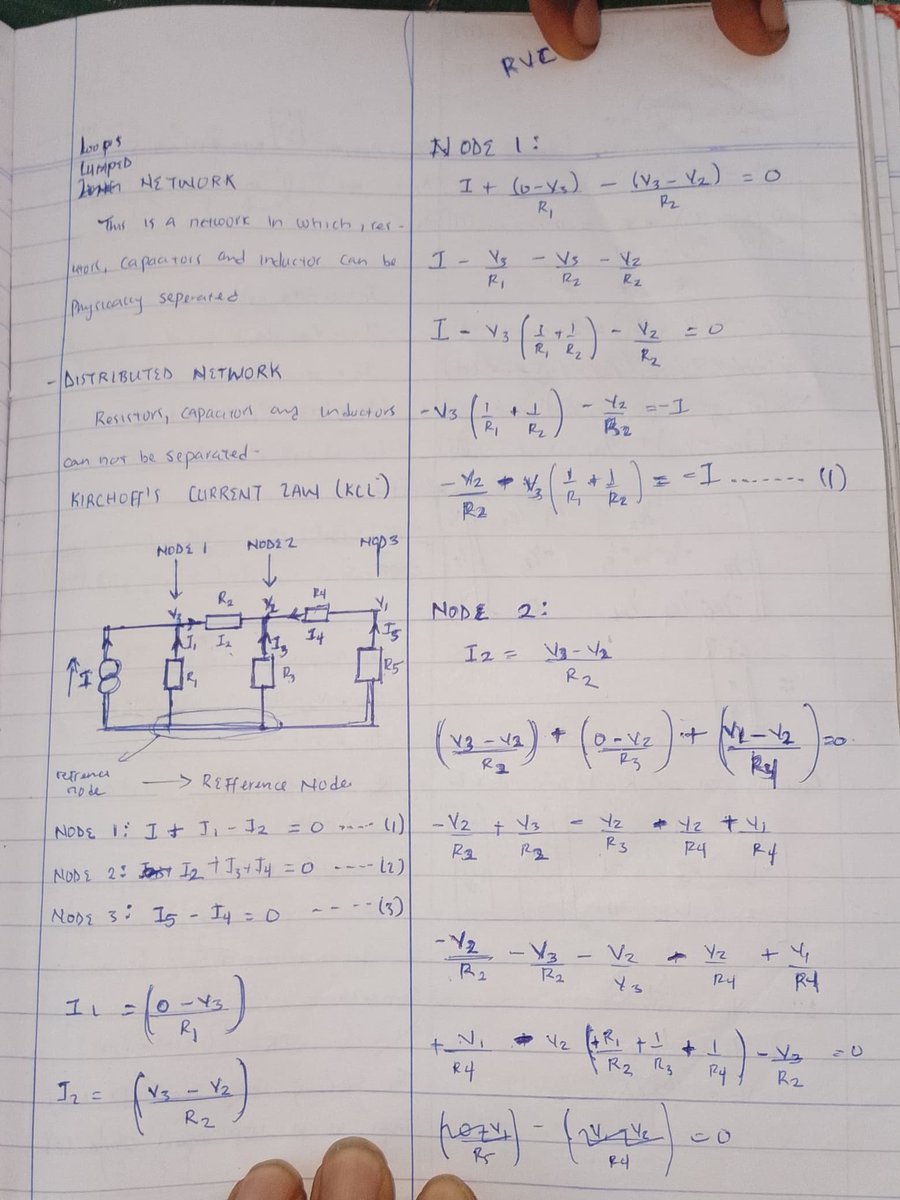 RVC
Loops
LUMPED
NETWORK
This is a network in which, res-
itors, capacitors and inductor can be
physically seperated
- DISTRIBUTED NETWORK
Resistors, capacitors and inductors
can not be separated-
KIRCHOFF'S CURRENT LAW (KCL)
NODE 1 NODE 2 NOD3
V3 R2 V2 R4 V1
I1 I2 I3 I4 I5
I R1 R3 R5
refrence
node → REfference Node
NODE 1: I + I1 - I2 = 0 ---- (1)
NODE 2: I2 + I3 + I4 = 0 ---- (2)
NODE 3: I5 - I4 = 0 ---- (3)
I1 = (0 - V3 / R1)
I2 = (V3 - V2 / R2)
NODE 1:
I + (0 - V3) / R1 - (V3 - V2) / R2 = 0
I - V3/R1 - V3/R2 - V2/R2
I - V3 (1/R1 + 1/R2) - V2/R2 = 0
-V3 (1/R1 + 1/R2) - V2/R2 = -I
-V2/R2 - V3 (1/R1 + 1/R2) = -I ....... (1)
NODE 2:
I2 = V3 - V2 / R2
(V3 - V2 / R2) + (0 - V2 / R3) + (V1 - V2 / R4) = 0
-V2/R2 + V3/R2 - V2/R3 - V2/R4 + V1/R4
-V2/R2 - V3/R2 - V2/V3 - V2/R4 + V1/R4
+ V1/R4 - V2 (+R1/R2 + 1/R3 + 1/R4) - V3/R2 = 0
= 0